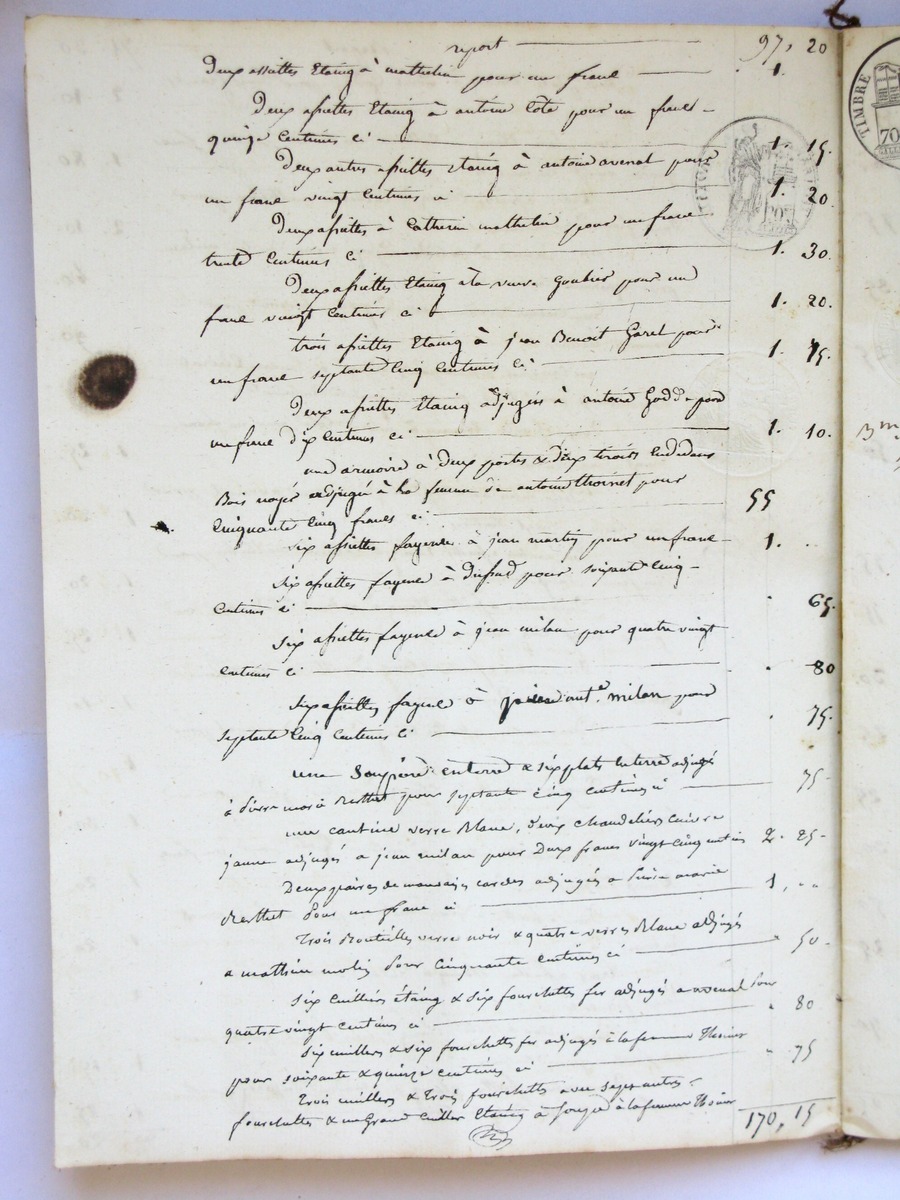 report 97, 20
Deux assiettes Etaing à mathelin pour un franc 1.
Deux assiettes Etaing à antoine Cote pour un franc
quinze Centimes ci 1. 15.
Deux autres assiettes etaing à antoine avenat pour
un franc vingt Centimes ci 1. 20
Deux assiettes à Catherin mathelin pour un franc
trente Centimes ci 1. 30.
Deux assiettes Etaing à la veuve Goubier pour un
franc vingt Centimes ci 1. 20.
trois assiettes Etaing à jean Benoit Garel pour
un franc septante Cinq Centimes ci 1. 75.
Deux assiettes Etaing adjugées à antoine
un franc dix Centimes ci 1. 10.
une armoire à Deux portes & Deux tiroirs
Bois noyer adjugée à la femme de antoine thoinet pour
Cinquante Cinq francs ci 55
six assiettes fayence à jean martin pour un franc 1. ..
six assiettes fayence à pour soixante Cinq
Centimes ci 65.
six assiettes fayence à jean milan pour quatre vingt
centimes ci 80
six assiettes fayence à antе milan pour
septante Cinq Centimes ci 75.
une Soupière enterre & six plats enterre adjugés
à Pierre marie Berthet pour septante cinq centimes ci 75
une cantine verre blanc, deux chandeliers cuivre
jaune adjugés a jean milan pour Deux francs vingt cinq centimes 2. 25
Deux paires de mauvaises cardes adjugées a Pierre marie
Berthet pour un franc ci 1, ..
trois bouteilles verre noir & quatre verres blanc adjugés
a mathieu molin pour cinquante centimes ci 50
six cuilliers étaing & six fourchettes fer adjugés a avenat pour
quatre vingt centimes ci 80
six cuillers & six fourchettes fer adjugés à la femme Thoinet
pour soixante & quinze centimes ci 75
trois cuillers & trois fourchettes avec sept autres
fourchettes & un Grand cuiller Etaing à soupe à la femme Thoinet
170, 15
TIMBRE
70